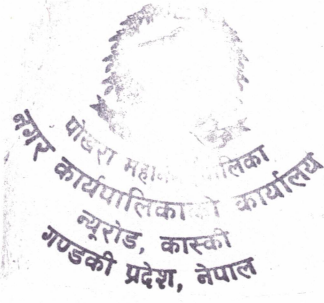 पोखरा महा पालिका
नगर कार्यपालिकाको कार्यालय
न्यूरोड, कास्की
गण्डकी प्रदेश, नेपाल